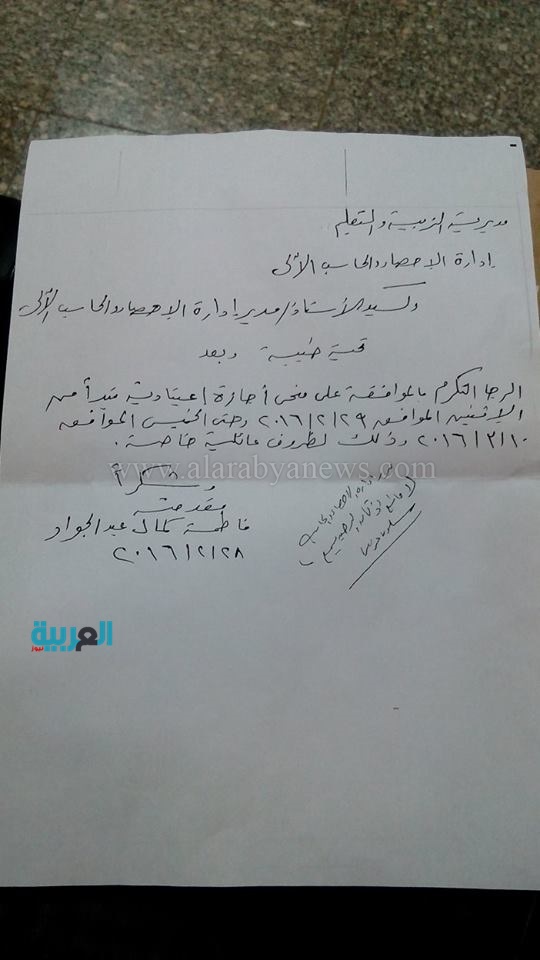 مديرية التربية والتعليم
إدارة الإحصاء والحاسب الآلى
السيد الأستاذ/ مدير إدارة الإحصاء والحاسب الآلى
تحية طيبة وبعد
الرجا التكرم بالموافقة على منحى أجازة إعتيادية تبدأ من
الإثنين الموافق ٢٠١٦/٢/٢٩ وحتى الخميس الموافق
٢٠١٦/٣/١٠ وذلك لظروف عائلية خاصة.
وشكراً
www.alarabyanews.com
مقدمته
فاطمة كمال عبد الجواد
٢٠١٦/٢/٢٨
مدير إدارة الإحصاء والحاسب
لا مانع
العربية
نيوز